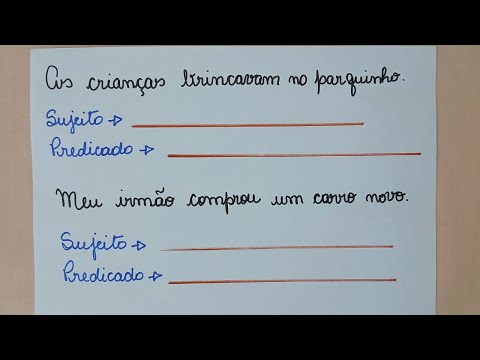 As crianças brincavam no parquinho.
Sujeito →
Predicado →
Meu irmão comprou um carro novo.
Sujeito →
Predicado →